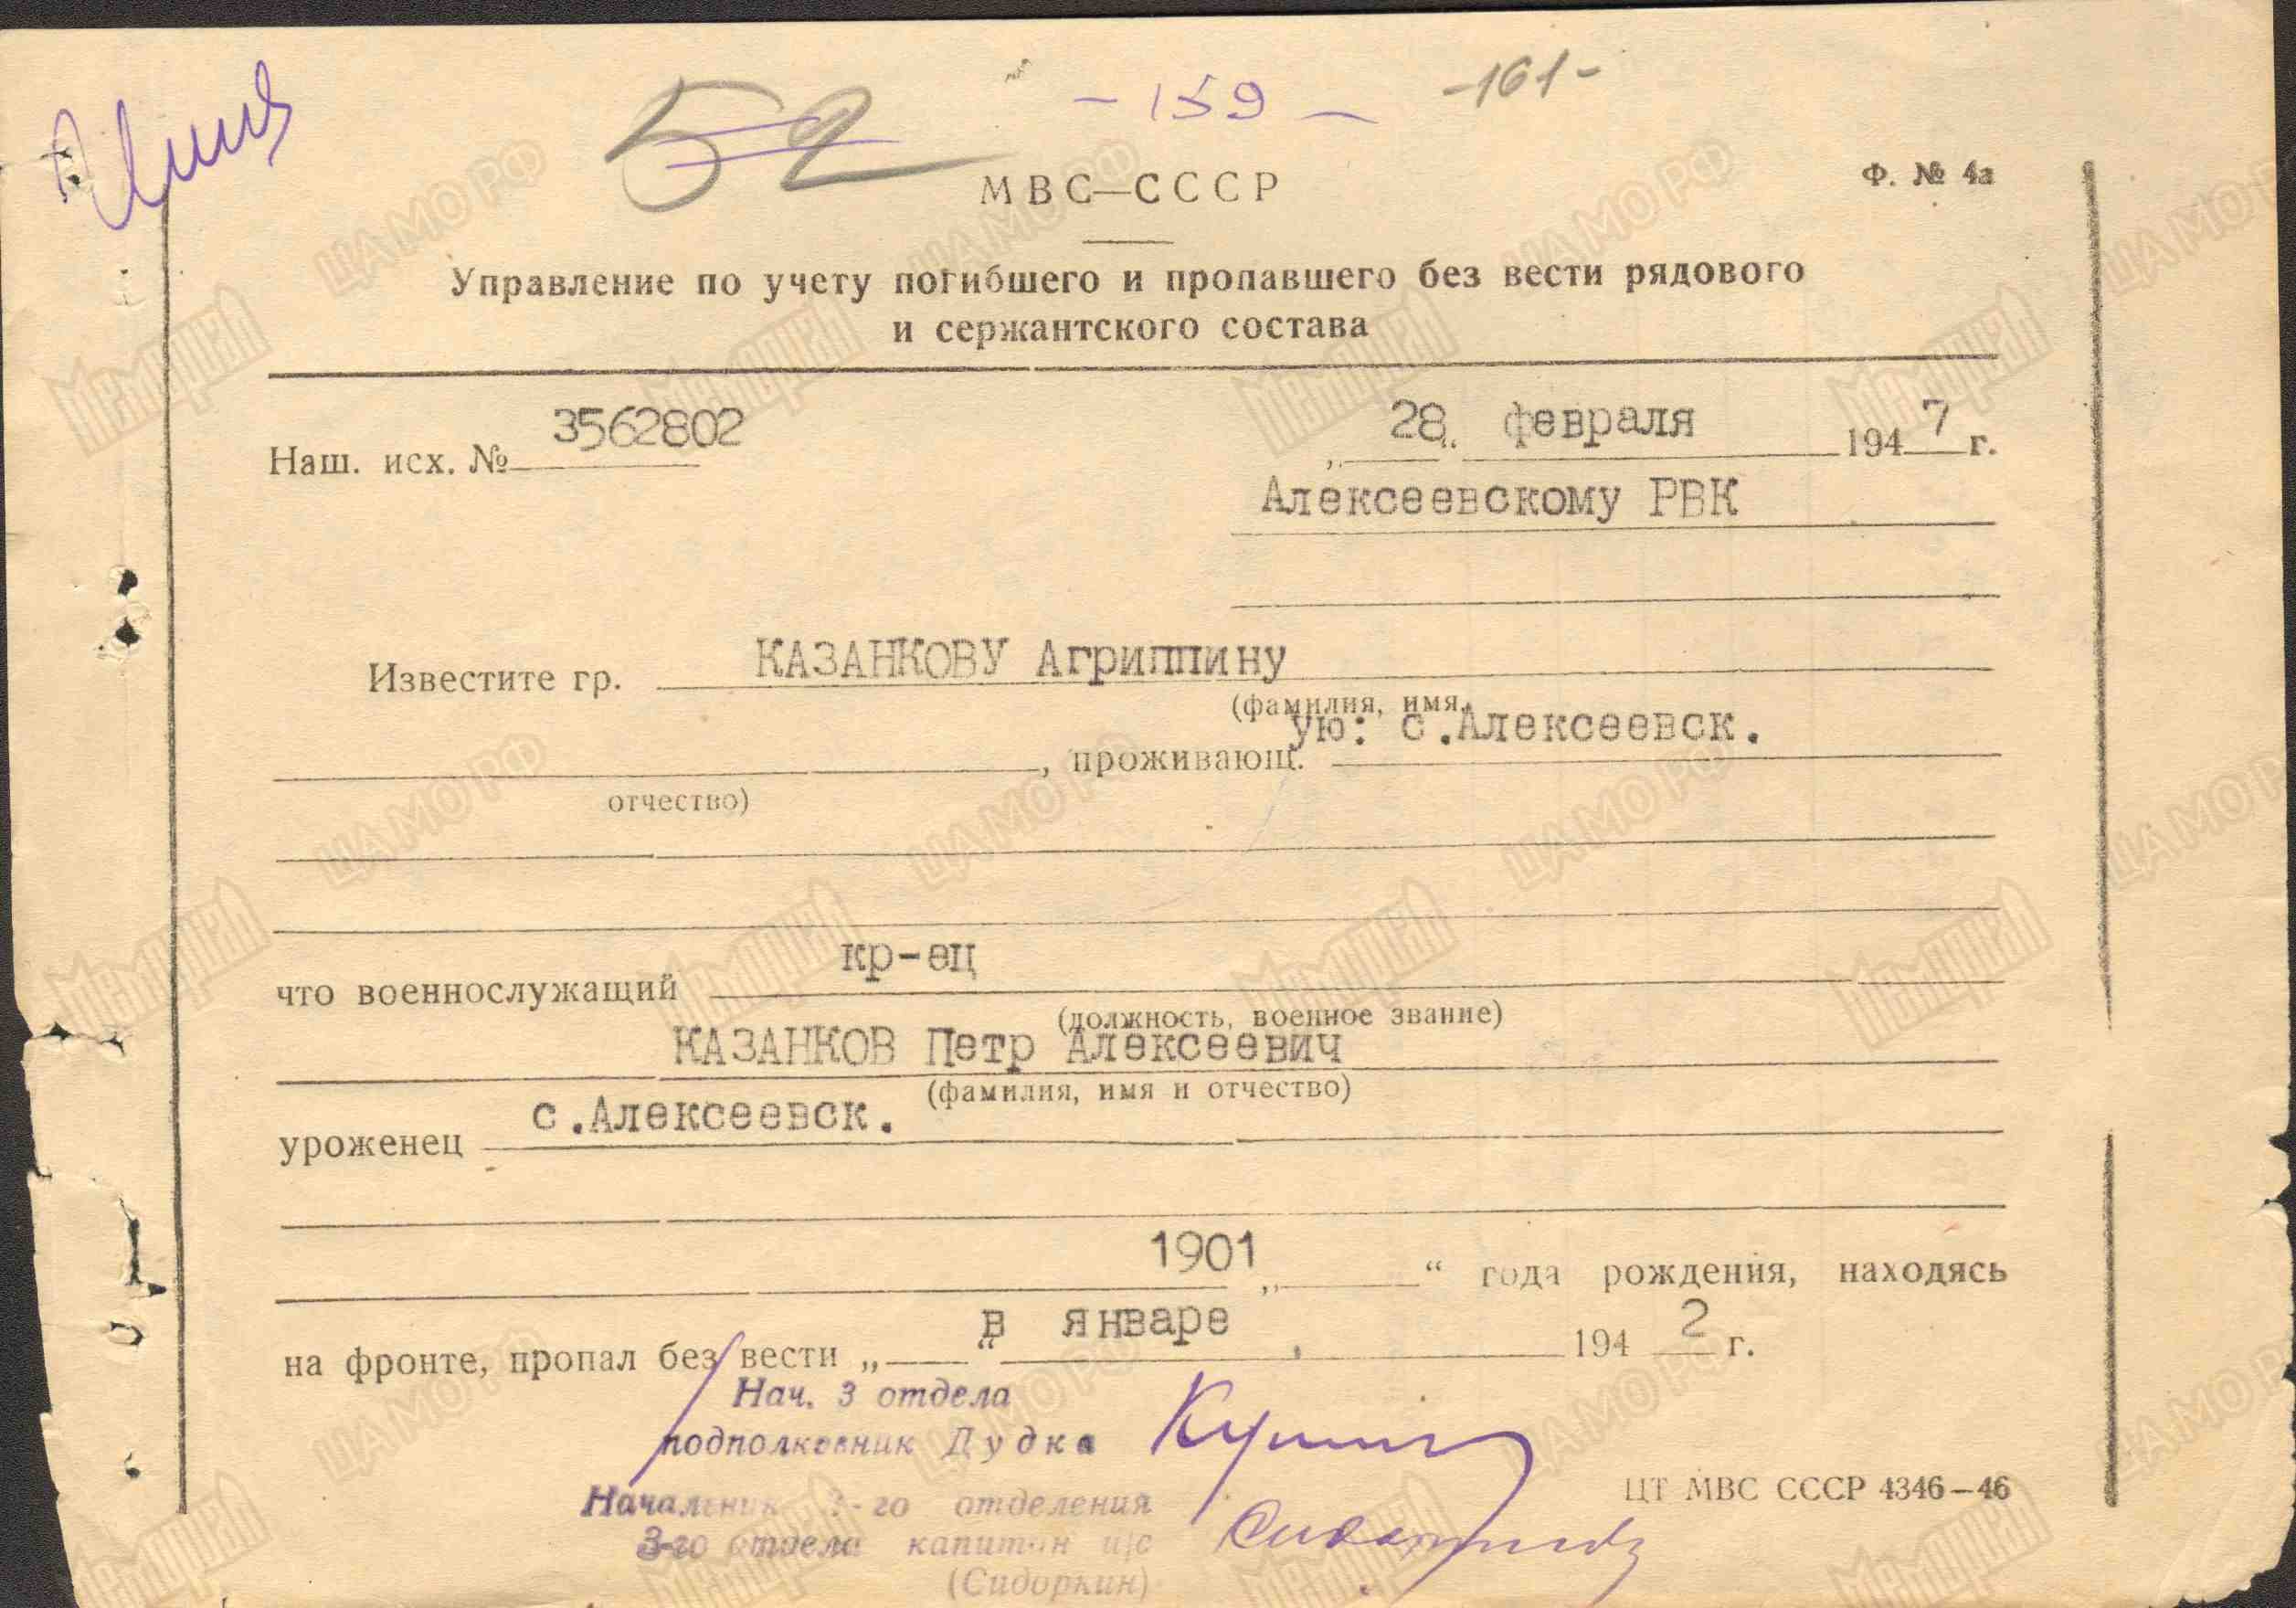 52
- 159 -
-161-
МВС—СССР
Ф. № 4а
Управление по учету погибшего и пропавшего без вести рядового
и сержантского состава
Наш. исх. № 3562802
„ 28 “ февраля 1947 г.
Алексеевскому РВК
Известите гр. КАЗАНКОВУ Агриппину
(фамилия, имя,
, проживающ. ую: с.Алексеевск.
отчество)
что военнослужащий кр-ец
(должность, военное звание)
КАЗАНКОВ Петр Алексеевич
(фамилия, имя и отчество)
уроженец с.Алексеевск.
1901 „ “ года рождения, находясь
на фронте, пропал без вести „ “ в январе 1942 г.
Нач. 3 отдела
подполковник Дудка
Начальник -го отделения
3-го отдела капитан и/с
(Сидоркин)
ЦТ МВС СССР 4346—46
Мемориал
ЦАМО РФ